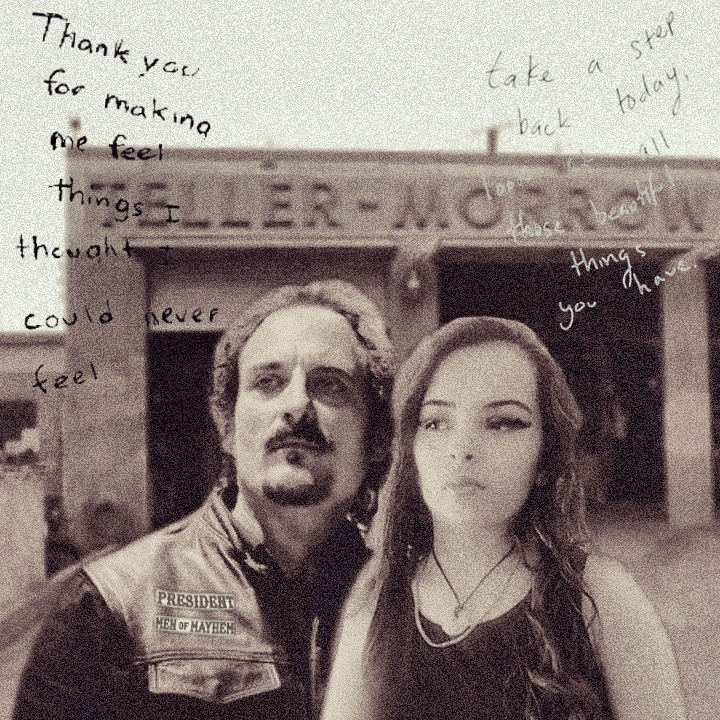 Thank you
for making
me feel
things I
thought I
could never
feel
take a step
back today.
look at all
those beautiful
things
you have.
TELLER-MORROW
PRESIDENT
MEN OF MAYHEM